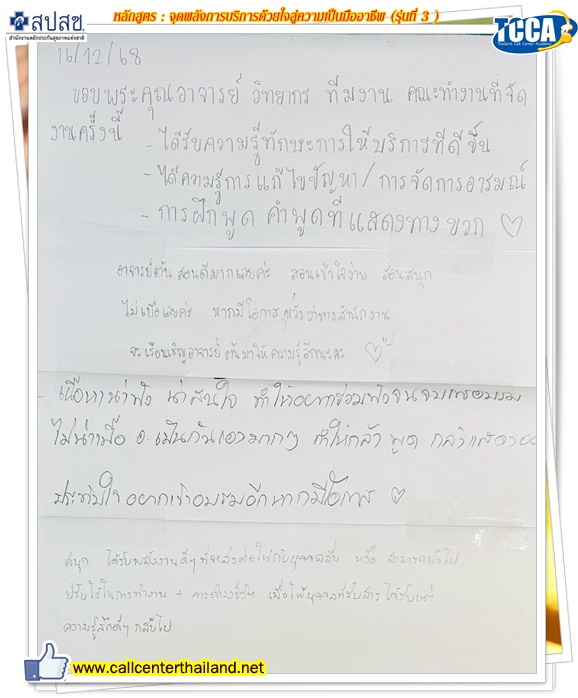 สปสช.
สำนักงานหลักประกันสุขภาพแห่งชาติ
หลักสูตร : จุดพลังการบริการด้วยใจสู่ความเป็นมืออาชีพ (รุ่นที่ 3 )
TCCA
Thailand Call Center Academy
16/12/68
ขอบพระคุณอาจารย์ วิทยากร ทีมงาน คณะทำงานที่จัด
งานครั้งนี้
- ได้รับความรู้ทักษะการให้บริการที่ดีขึ้น
- ได้ความรู้การแก้ไขปัญหา / การจัดการอารมณ์
- การฝึกพูด คำพูดที่แสดงทางบวก ♡
อาจารย์ สอนดีมากเลยค่ะ สอนเข้าใจง่าย สอนสนุก
ไม่เบื่อเลยค่ะ หากมีโอกาส หวังว่าทางสำนักงาน
จะเรียนเชิญอาจารย์ มาให้ความรู้อีกนะคะ ♡
- เนื้อหาน่าฟัง น่าสนใจ ทำให้อยากร่วมฟังจนจบการอบรม
ไม่น่าเบื่อ อ.เป็นกันเองมากๆ ทำให้กล้า พูด กล้าแสดงออก
ประทับใจ อยากเข้าอบรมอีกหากมีโอกาส ♡
สนุก ได้รับพลังงานดีๆ ที่จะส่งต่อให้กับบุคคลอื่น หรือ สามารถนำไป
ปรับใช้ในการทำงาน + การดำรงชีวิต เพื่อให้บุคคลที่รับสาร ได้รับแต่
ความรู้สึกดีๆ กลับไป
www.callcenterthailand.net